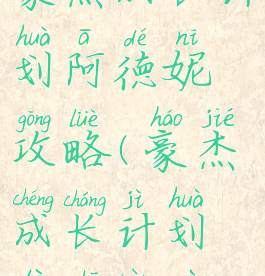 huà ā dé nī
划阿德妮
gōng lüè háo jié
攻略(豪杰
chéng cháng jì huà
成长计划